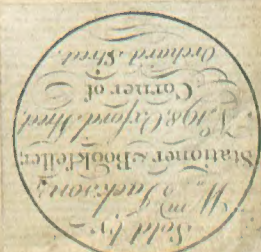 Sold by
Wm. Jackson,
Stationer & Bookſeller,
No. 198 Oxford Street
Corner of
Orchard Street.